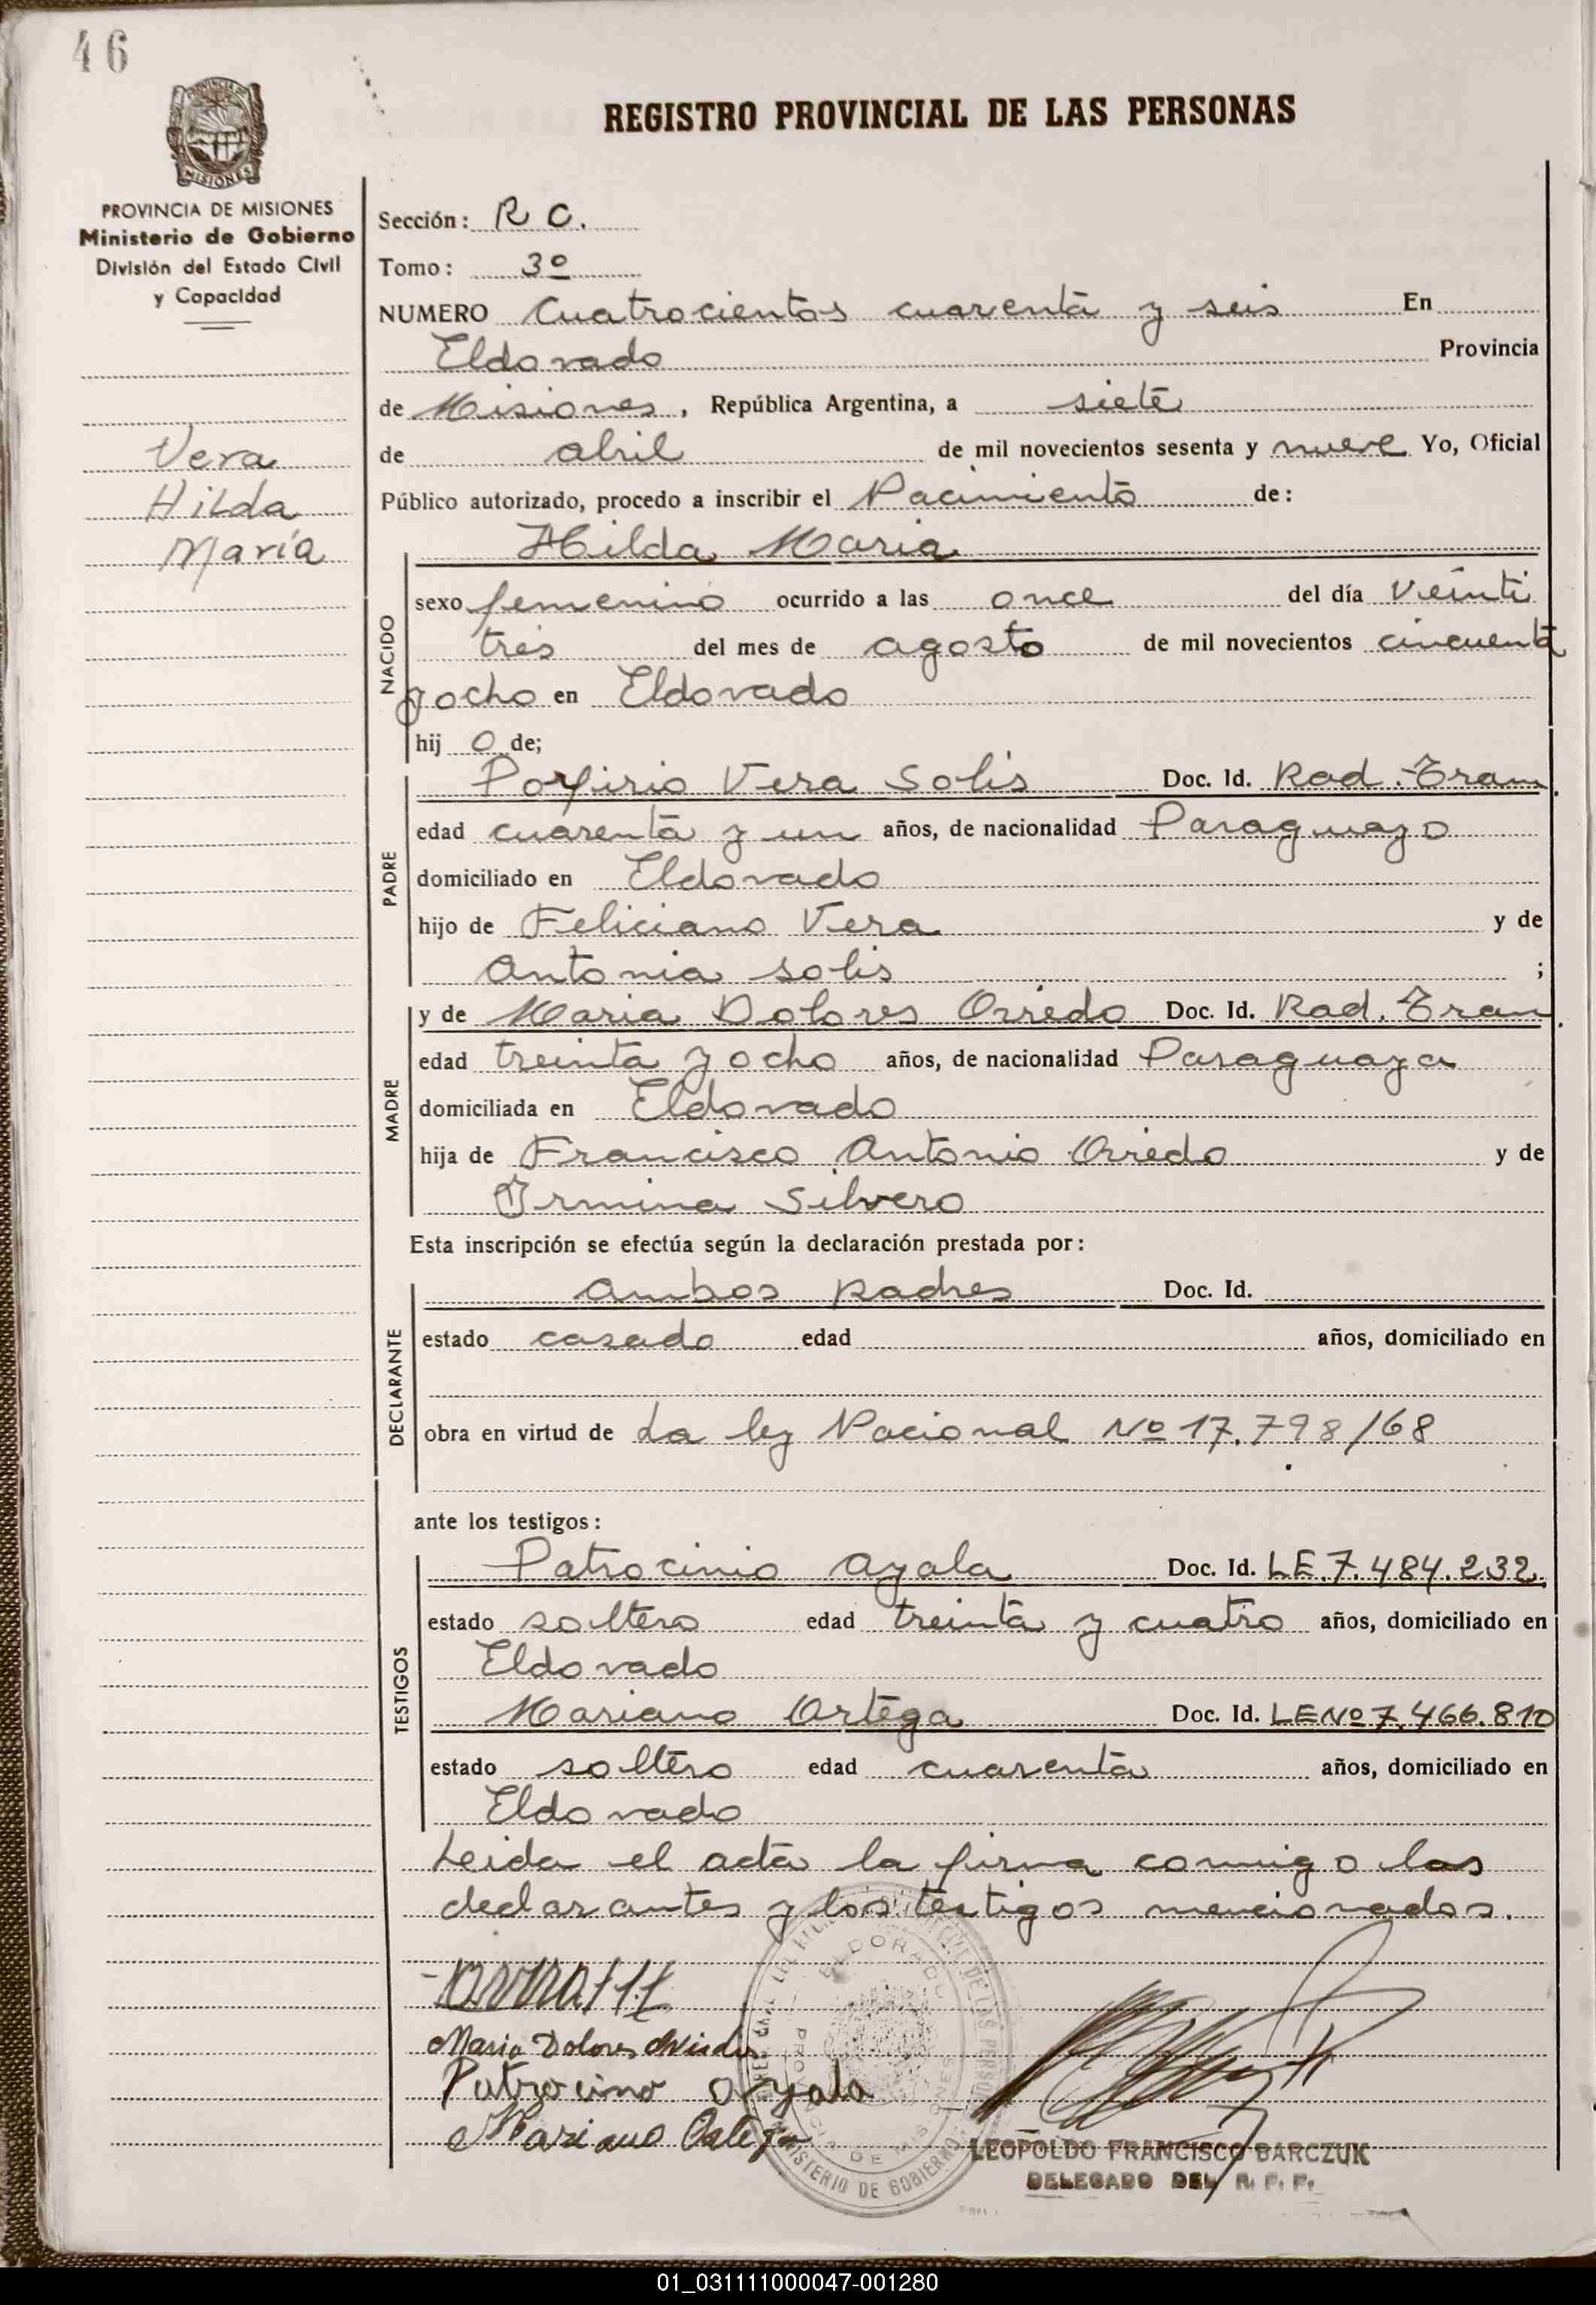 46
MISIONES
REGISTRO PROVINCIAL DE LAS PERSONAS
PROVINCIA DE MISIONES
Ministerio de Gobierno
División del Estado Civil
y Capacidad
Vera
Hilda
María
Sección: R C.
Tomo: 3º
NUMERO Cuatrocientos cuarenta y seis En
Eldorado Provincia
de Misiones, República Argentina, a siete
de abril de mil novecientos sesenta y nueve Yo, Oficial
Público autorizado, procedo a inscribir el Nacimiento de:
Hilda Maria
NACIDO
sexo femenino ocurrido a las once del día veinti
tres del mes de agosto de mil novecientos cincuenta
y ocho en Eldorado
hij o de;
PADRE
Porfirio Vera Solis Doc. Id. Rad. Tram.
edad cuarenta y un años, de nacionalidad Paraguayo
domiciliado en Eldorado
hijo de Feliciano Vera y de
Antonia Solis ;
MADRE
y de Maria Dolores Oviedo Doc. Id. Rad. Tram.
edad treinta y ocho años, de nacionalidad Paraguaya
domiciliada en Eldorado
hija de Francisco Antonio Oviedo y de
Irmina Silvero
Esta inscripción se efectúa según la declaración prestada por:
DECLARANTE
ambos padres Doc. Id.
estado casado edad años, domiciliado en
obra en virtud de La ley Nacional Nº 17.798/68
ante los testigos:
TESTIGOS
Patrocinio Ayala Doc. Id. LE.7.484.232.
estado soltero edad treinta y cuatro años, domiciliado en
Eldorado
Mariano Ortega Doc. Id. LE Nº 7.466.810
estado soltero edad cuarenta años, domiciliado en
Eldorado
Leida el acta la firma conmigo los
declarantes y los testigos mencionados.
Maria Dolores Oviedo
Patrocino Ayala
Mariano Ortega
ELDORADO
PROVINCIA DE MISIONES
MINISTERIO DE GOBIERNO
LEOPOLDO FRANCISCO BARCZUK
DELEGADO DEL R. P. P.
01_031111000047-001280